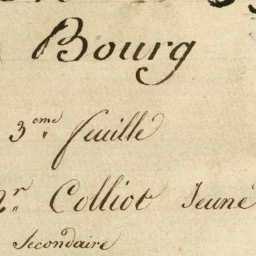 Bourg
3.eme feuille
Colliot Jeune
Secondaire